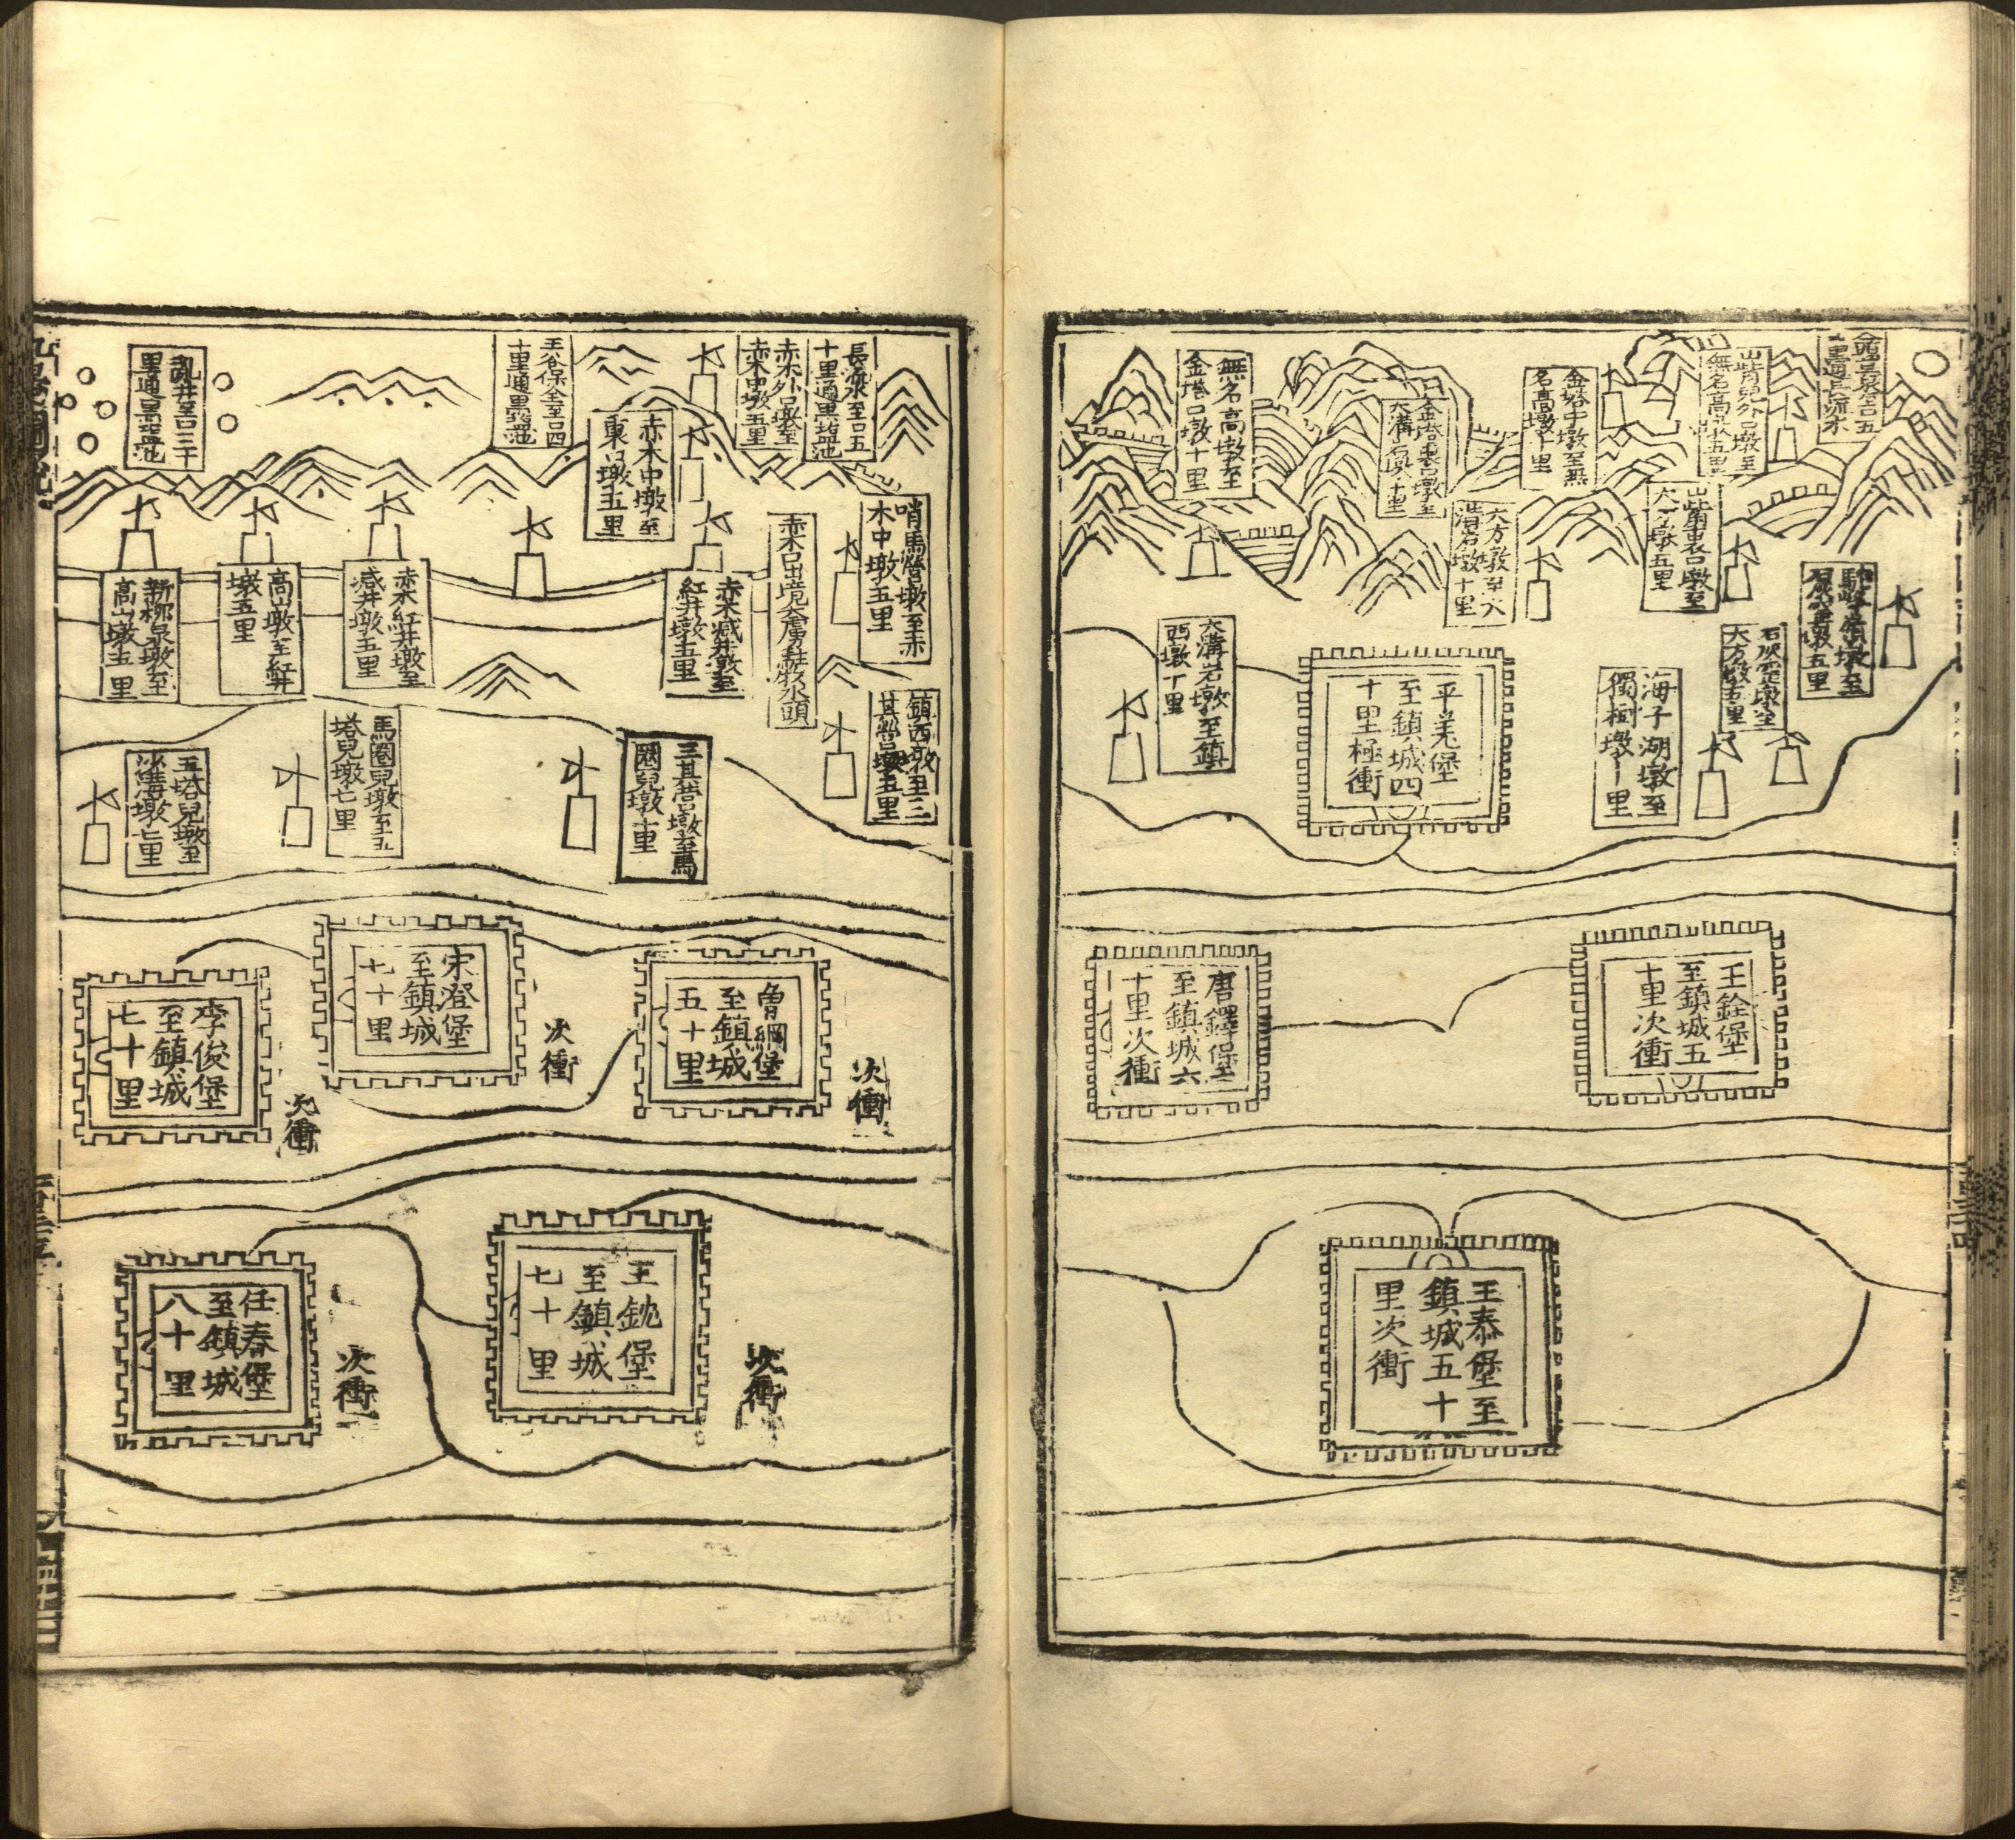 無名高墩至
金塔口墩十里
金塔裏口墩至
大溝
金塔中墩至無
名高墩十里
無名高墩五里
大方墩至大
溝岩墩十里
墩五里
大溝岩墩至鎮
西墩十里
大方墩五里
海子湖墩至
獨樹墩
平羌堡
至鎮城四
十里極衝
王銓堡
至鎮城五
十里次衝
唐鐸堡
至鎮城六
十里次衝
王泰堡至
鎮城五十
里次衝
長流水至口五
十里通黑
赤木外口墩至
赤木中墩五里
赤木中墩至
裏口墩五里
王谷保全至口四
十里通黑
亂井至口三十
里通黑
哨馬營墩至赤
木中墩五里
赤木口出境
赤木
紅井墩五里
赤木紅井墩至
井墩五里
高山墩至紅井
墩五里
新柳泉墩至
高山墩五里
鎮西墩至三
其營口墩五里
三其營口墩至馬
圈兒墩十里
馬圈兒墩至五
塔兒墩七里
五塔兒墩至
沙溝墩七里
魯綱堡
至鎮城
五十里
次衝
宋澄堡
至鎮城
七十里
次衝
李俊堡
至鎮城
七十里
次衝
王
堡
至鎮城
七十里
次衝
任春堡
至鎮城
八十里
次衝